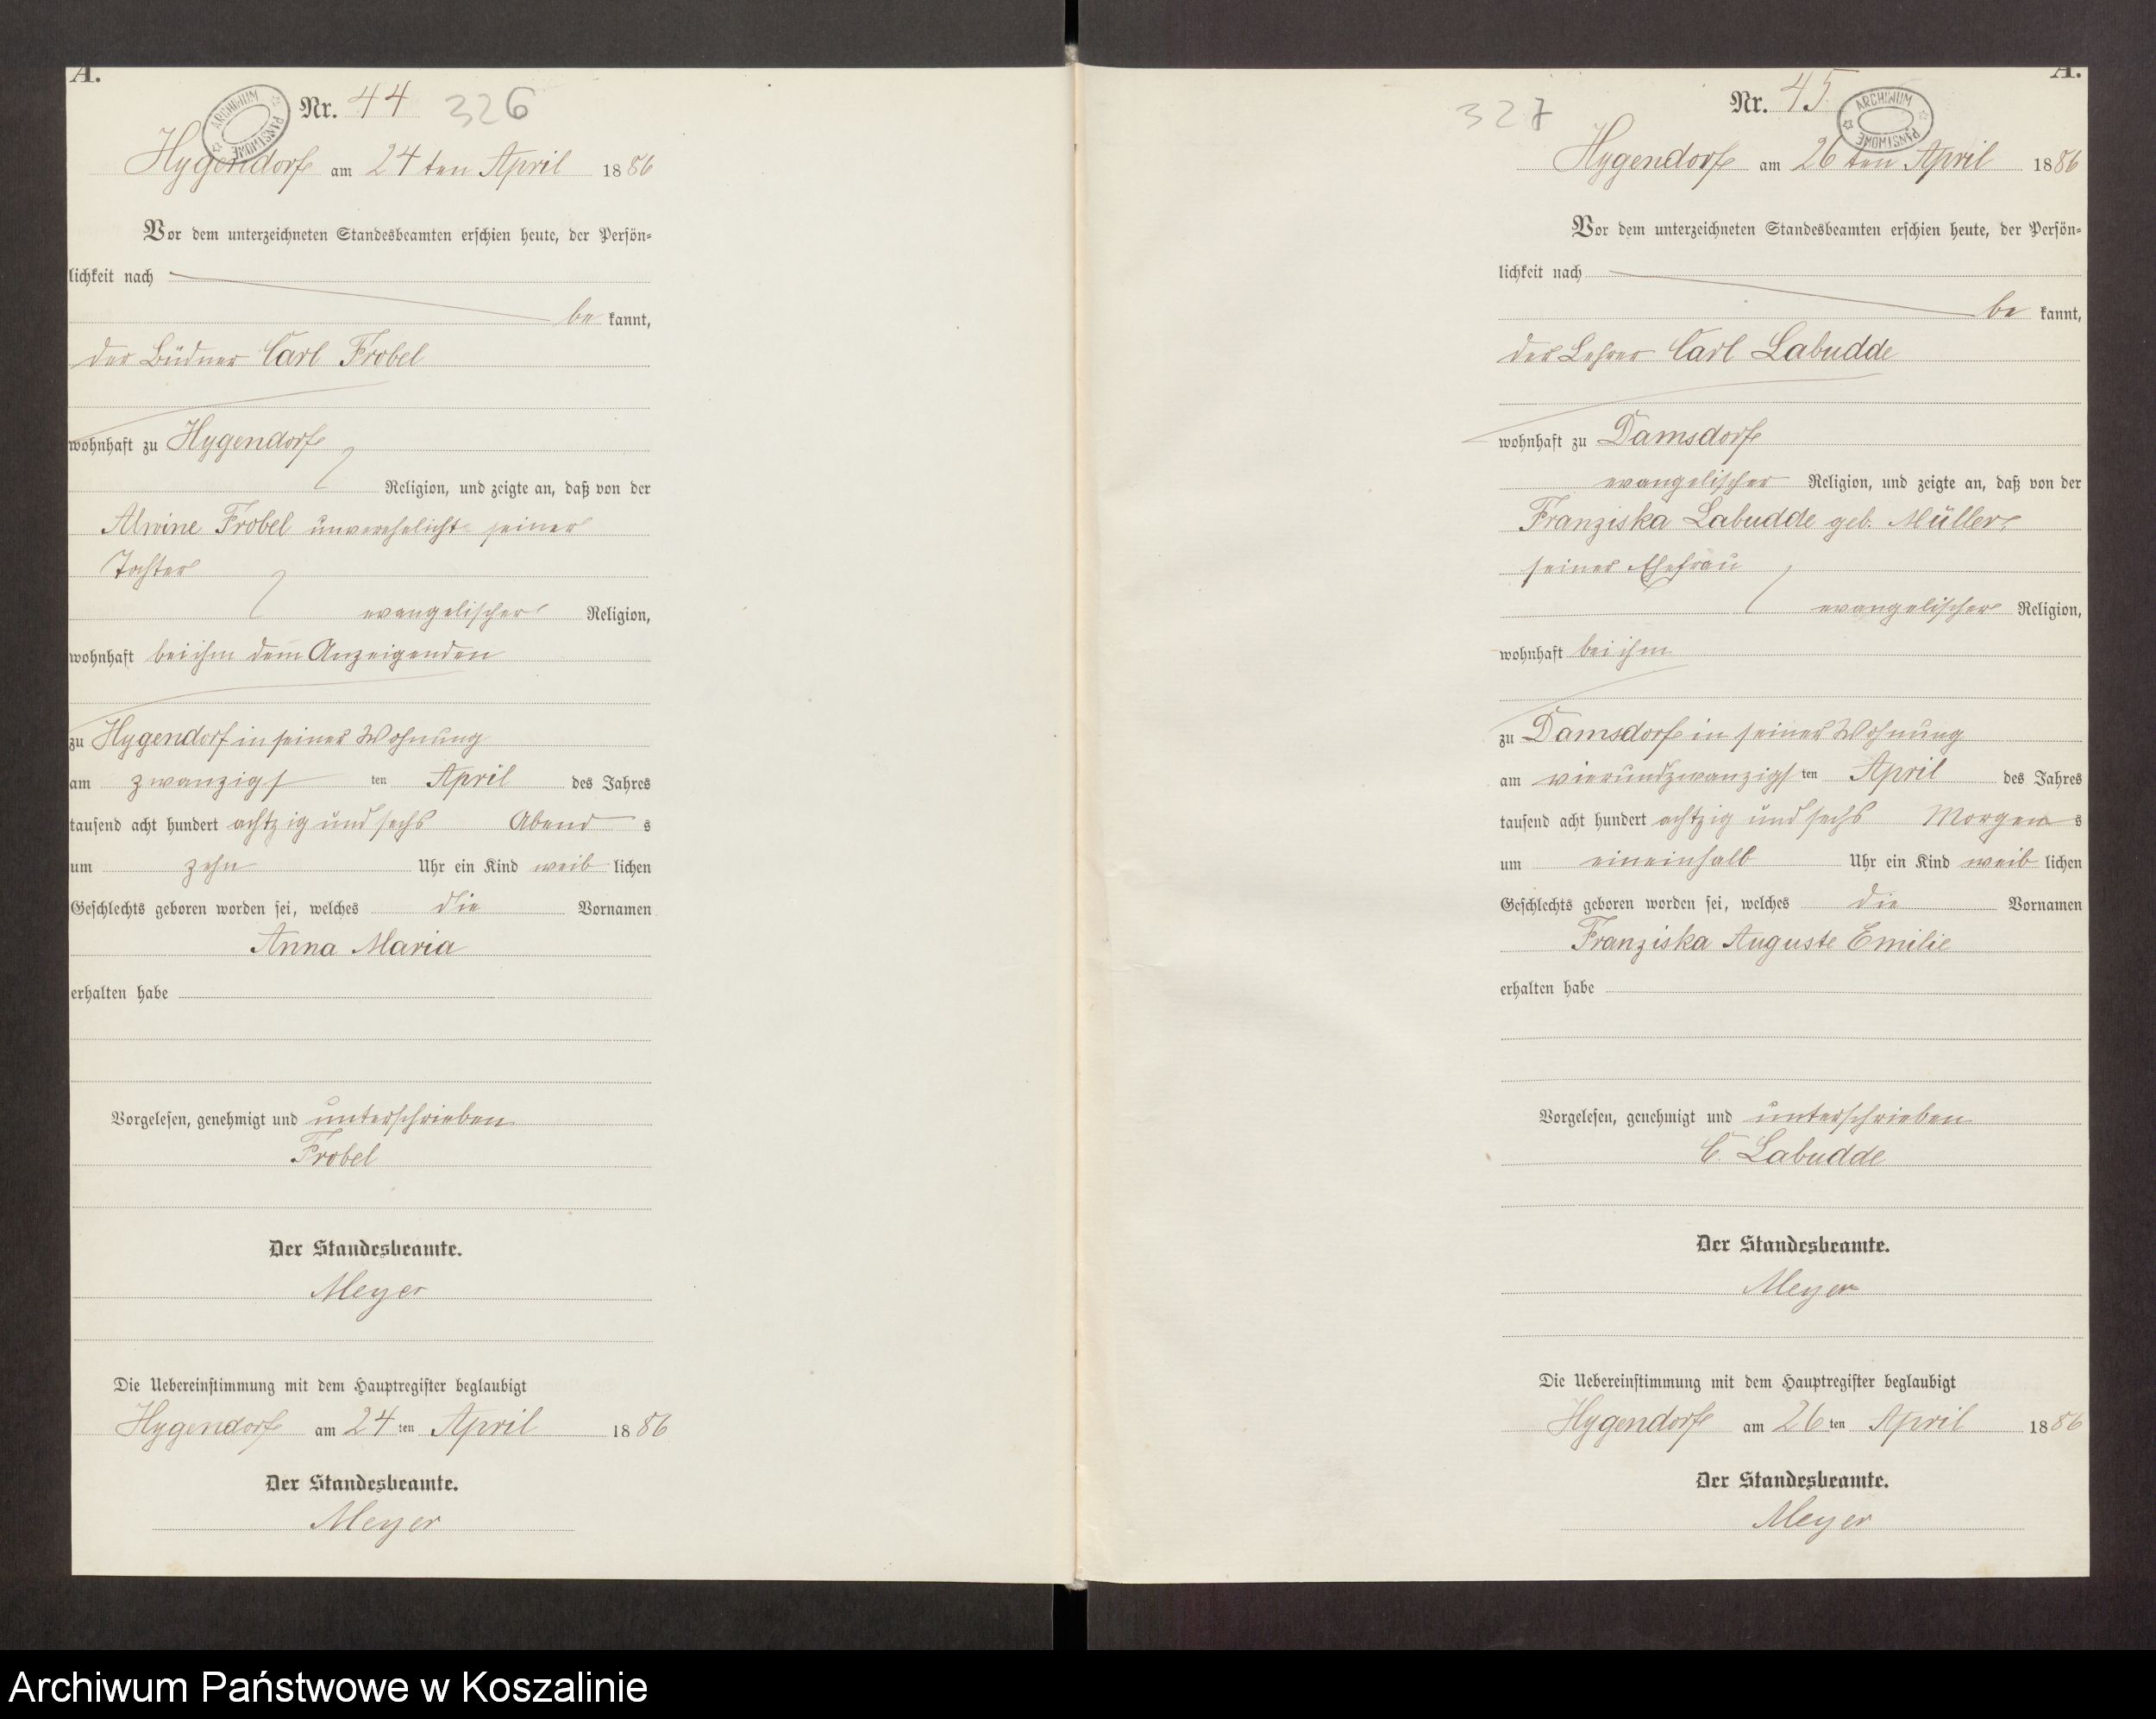 A.
ARCHIWUM PAŃSTWOWE
Nr. 44 326
Hygendorf am 24 ten April 1886
Vor dem unterzeichneten Standesbeamten erschien heute, der Persön-
lichkeit nach
be kannt,
der Büdner Carl Frobel
wohnhaft zu Hygendorf
Religion, und zeigte an, daß von der
Alwine Frobel unverehelicht seiner
Tochter
evangelischer Religion,
wohnhaft bei ihm dem Anzeigenden
zu Hygendorf in seiner Wohnung
am zwanzigs ten April des Jahres
tausend acht hundert achtzig und sechs Abend s
um zehn Uhr ein Kind weib lichen
Geschlechts geboren worden sei, welches die Vornamen
Anna Maria
erhalten habe
Vorgelesen, genehmigt und unterschrieben
Frobel
Der Standesbeamte.
Meyer
Die Uebereinstimmung mit dem Hauptregister beglaubigt
Hygendorf am 24 ten April 1886
Der Standesbeamte.
Meyer
A.
327 Nr. 45
ARCHIWUM PAŃSTWOWE
Hygendorf am 26 ten April 1886
Vor dem unterzeichneten Standesbeamten erschien heute, der Persön-
lichkeit nach
be kannt,
der Lehrer Carl Labudde
wohnhaft zu Damsdorf
evangelischer Religion, und zeigte an, daß von der
Franziska Labudde geb. Müller
seiner Ehefrau
evangelischer Religion,
wohnhaft bei ihm
zu Damsdorf in seiner Wohnung
am vierundzwanzigs ten April des Jahres
tausend acht hundert achtzig und sechs Morgen s
um eineinhalb Uhr ein Kind weib lichen
Geschlechts geboren worden sei, welches die Vornamen
Franziska Auguste Emilie
erhalten habe
Vorgelesen, genehmigt und unterschrieben
C. Labudde
Der Standesbeamte.
Meyer
Die Uebereinstimmung mit dem Hauptregister beglaubigt
Hygendorf am 26 ten April 1886
Der Standesbeamte.
Meyer
Archiwum Państwowe w Koszalinie